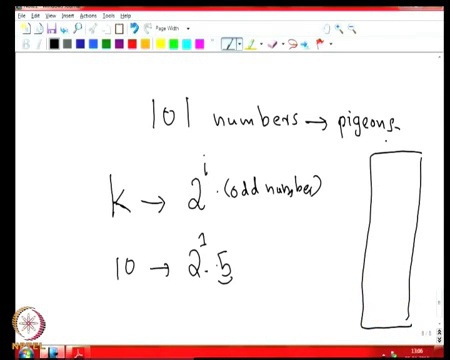 File Edit View Insert Actions Tools Help
Page Width
101 numbers → pigeons.
k → 2^i · (odd number)
10 → 2^1 · 5
NPTEL
13:08